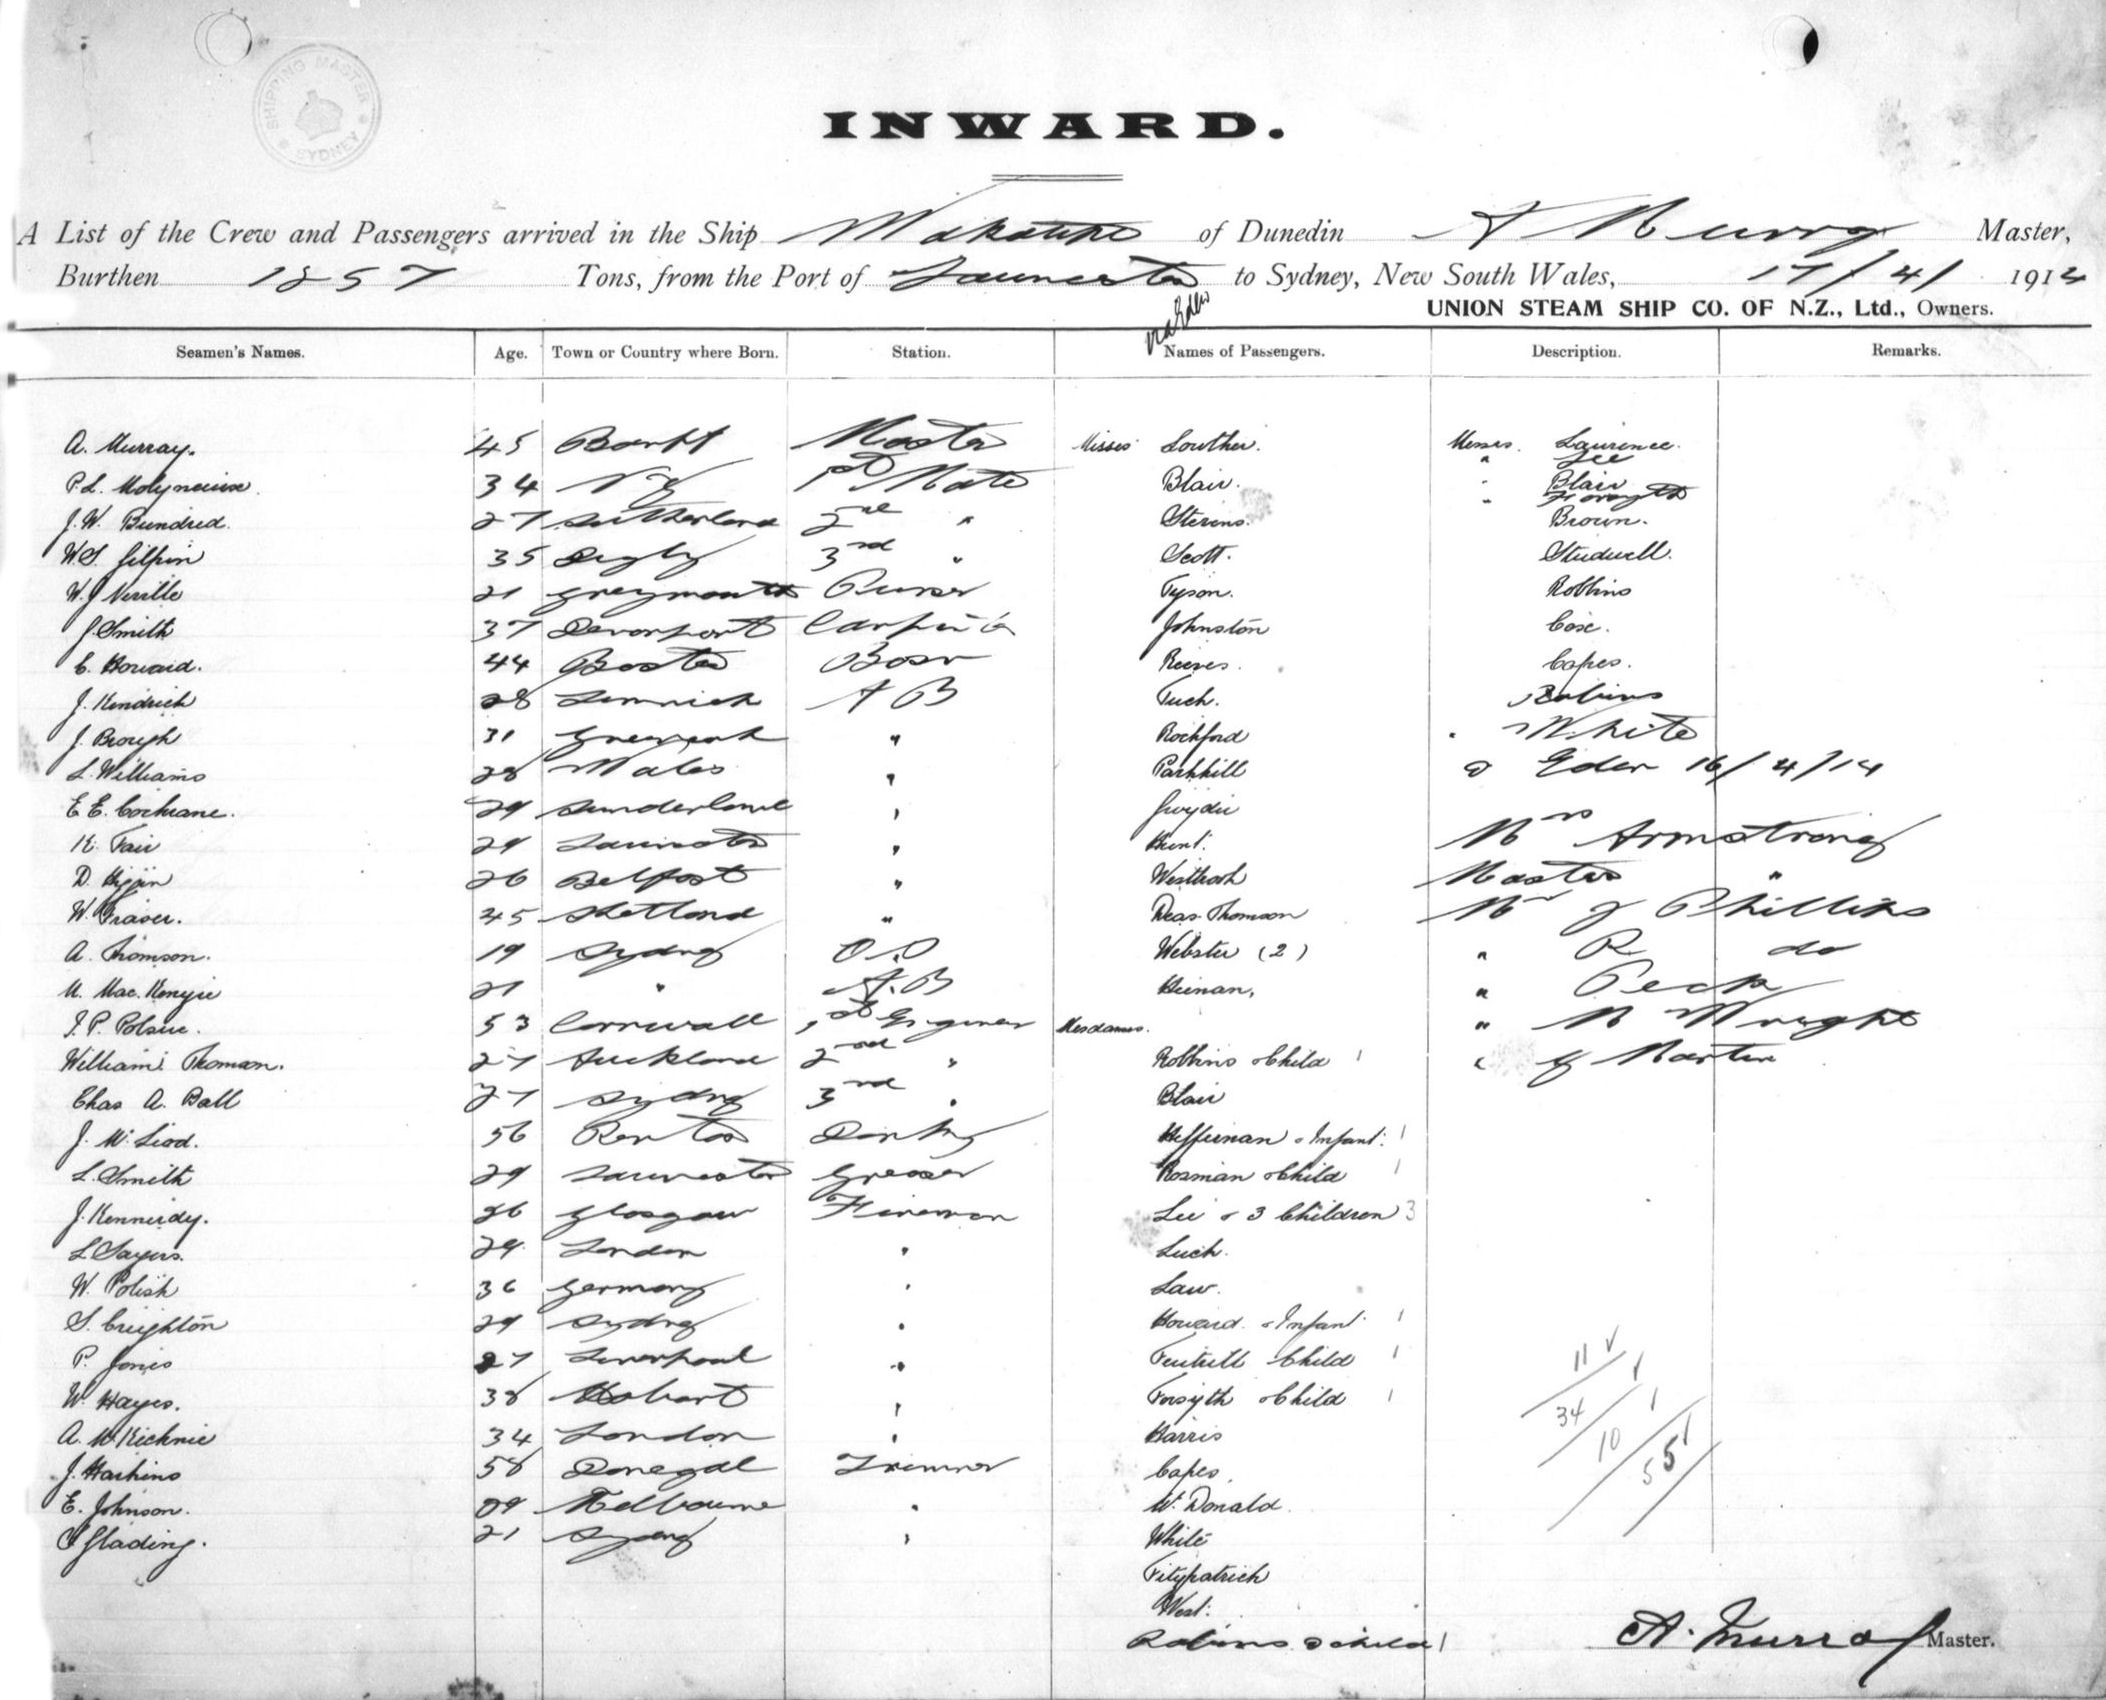 SHIPPING MASTER
SYDNEY
INWARD.
A List of the Crew and Passengers arrived in the Ship Wakatipu of Dunedin A Murray Master,
Burthen 1257 Tons, from the Port of Launceston to Sydney, New South Wales, 17/4/ 1914
via Eden
UNION STEAM SHIP CO. OF N.Z., Ltd., Owners.
Seamen's Names. Age. Town or Country where Born. Station. Names of Passengers. Description. Remarks.
A. Murray. 45 Banff Master Misses Louther. Messrs. Laurence.
" Lee
P.L. Molyneux 34 N Z 1st Mate Blair. " Blair
" Forsyth
J.W. Bundred. 27 Sutherland 2nd " Stevens. Brown.
W.S. Gilpin 35 Digby 3rd " Scott. Studwell.
W.J Neville 21 Greymouth Purser Tyson. Robbins
J. Smith 37 Devonport Carpenter Johnston Cox.
C. Howard. 44 Boston Bosn Reeves. Capes.
J. Kendrick 28 Limerick A B Tuck. Robins
J. Brough 31 Greenock " Rockford " White
L. Williams 28 Wales " Parkhill @ Eden 16/4/14
E E. Cochrane. 29 Sunderland " Gwydir
K. Fair 29 Launceston " Hunt. Mrs Armstrong
D. 26 Belfast " Westbrook Master "
W. Fraser. 45 Shetland " Deas-Thomson Mr J Phillips
A. Thomson. 19 Sydney O.S Webster (2) " R do
M. MacKenzie 21 " A.B Heenan, " Peck
J. P. Polsue. 53 Cornwall 1st Engineer Mesdames. " M Wright
William Thomson. 27 Auckland 2nd " Robbins & Child 1 " G Martin
Chas A. Ball 27 Sydney 3rd " Blair
J. McLeod. 56 Renton Donkey Heffernan & Infant. 1
L. Smith 29 Launceston Greaser Rosman & Child 1
J. Kennerdy. 26 Glasgow Fireman Lee & 3 Children 3
L. Sayers. 29 London " Luck.
W. Polish 36 Germany " Law.
S. Creighton 29 Sydney " Howard & Infant 1
P. Jones 27 Liverpool " Child 1
W. Hayes. 38 Hobart " Forsyth & Child 1
A. McKichnie 34 London " Harris
J. Harkins 58 Donegal Trimmer Capes.
E. Johnson. 29 Melbourne " McDonald
Glading. 21 Sydney " White
Fitzpatrick
West.
Robins & child 1
11
34
10
55
A. Murray Master.